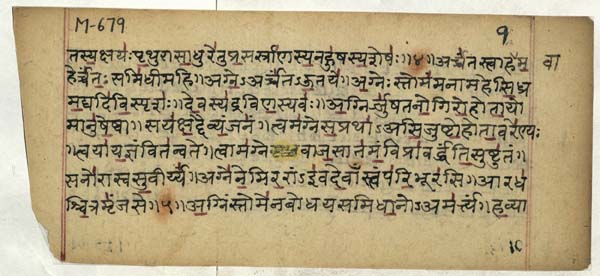 M-679
9
तस्य क्षयः पृथुरा साधुरेतु प्रसर्स्राणस्य नहुषस्य शेषः॥४॥अर्चंतस्त्वा हेम वा
हेर्चंतः समिधीमहि॥अग्नेऽअर्चंतऽऊतये॥अग्नेः स्तोमं मनामहे सिध्र
मद्य दिविस्पृशः॥देवस्य द्रविणस्यवः॥अग्निर्जुषत नो गिरो होता यो
मानुषेष्वा॥स यक्षद्दैव्यं जनं॥त्वमग्ने सप्रथाऽअसि जुष्टो होता वरेण्यः
॥त्वया यज्ञं वितन्वते॥त्वामग्ने वाजसातमं विप्रा वर्द्धंति सुष्टुतं॥
स नो रास्व सुवीर्यं॥अग्ने नेमिरराँऽइव देवाँस्त्वं परिभूरसि॥आ राध
श्चित्रमृंजसे॥५॥अग्निं स्तोमेन बोधय समिधानोऽअमर्त्यं॥हव्या